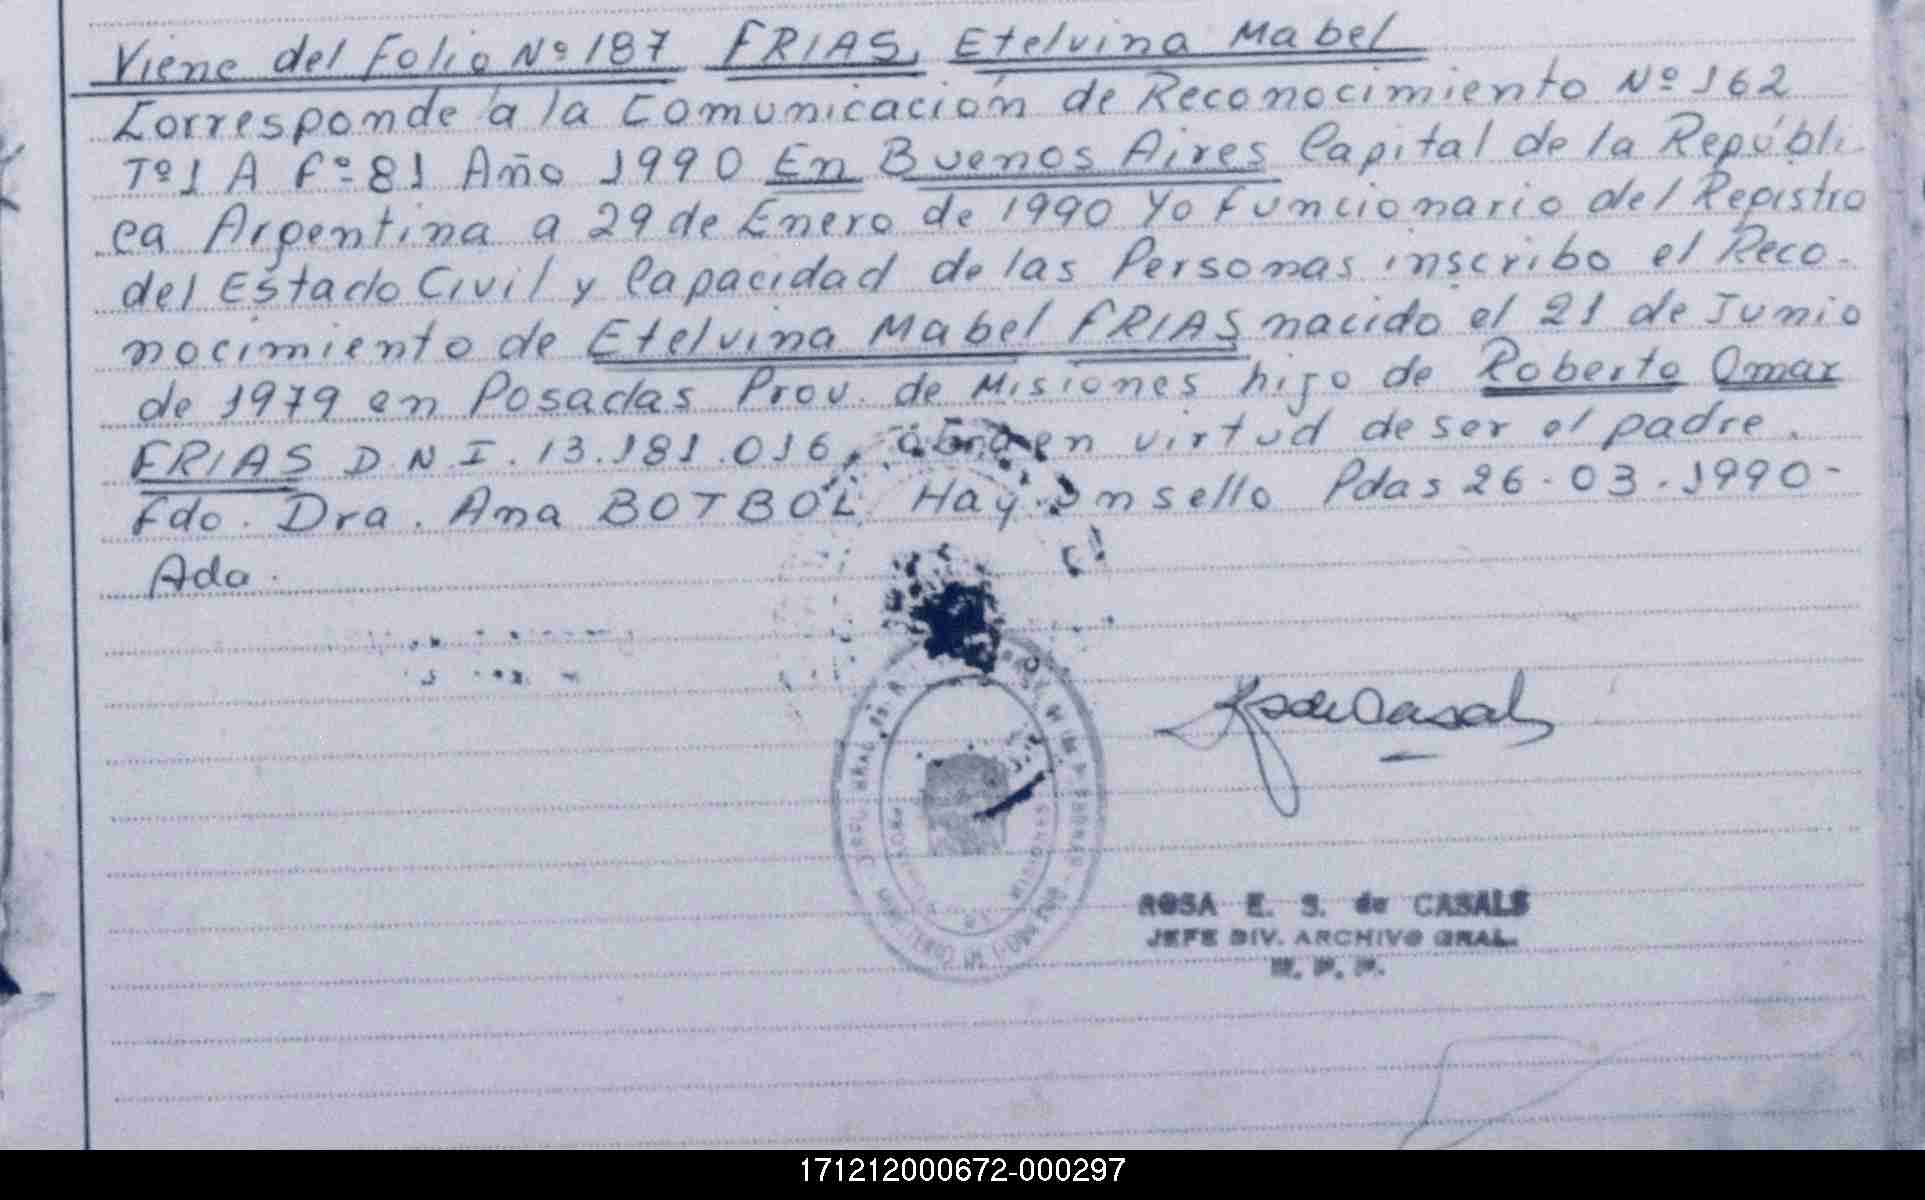 Viene del Folio Nº 187 FRIAS, Etelvina Mabel
Corresponde a la Comunicación de Reconocimiento Nº 162
Tº 1 A Fº 81 Año 1990 En Buenos Aires Capital de la Repúbli-
ca Argentina a 29 de Enero de 1990 Yo Funcionario del Registro
del Estado Civil y Capacidad de las Personas inscribo el Reco-
nocimiento de Etelvina Mabel FRIAS nacido el 21 de Junio
de 1979 en Posadas Prov. de Misiones hijo de Roberto Omar
FRIAS D.N.I. 13.181.016, obra en virtud de ser el padre.
Fdo. Dra. Ana BOTBOL Hay un sello Pdas 26-03-1990-
Ada.
ROSA E. S. de CASALS
JEFE DIV. ARCHIVO GRAL.
171212000672-000297